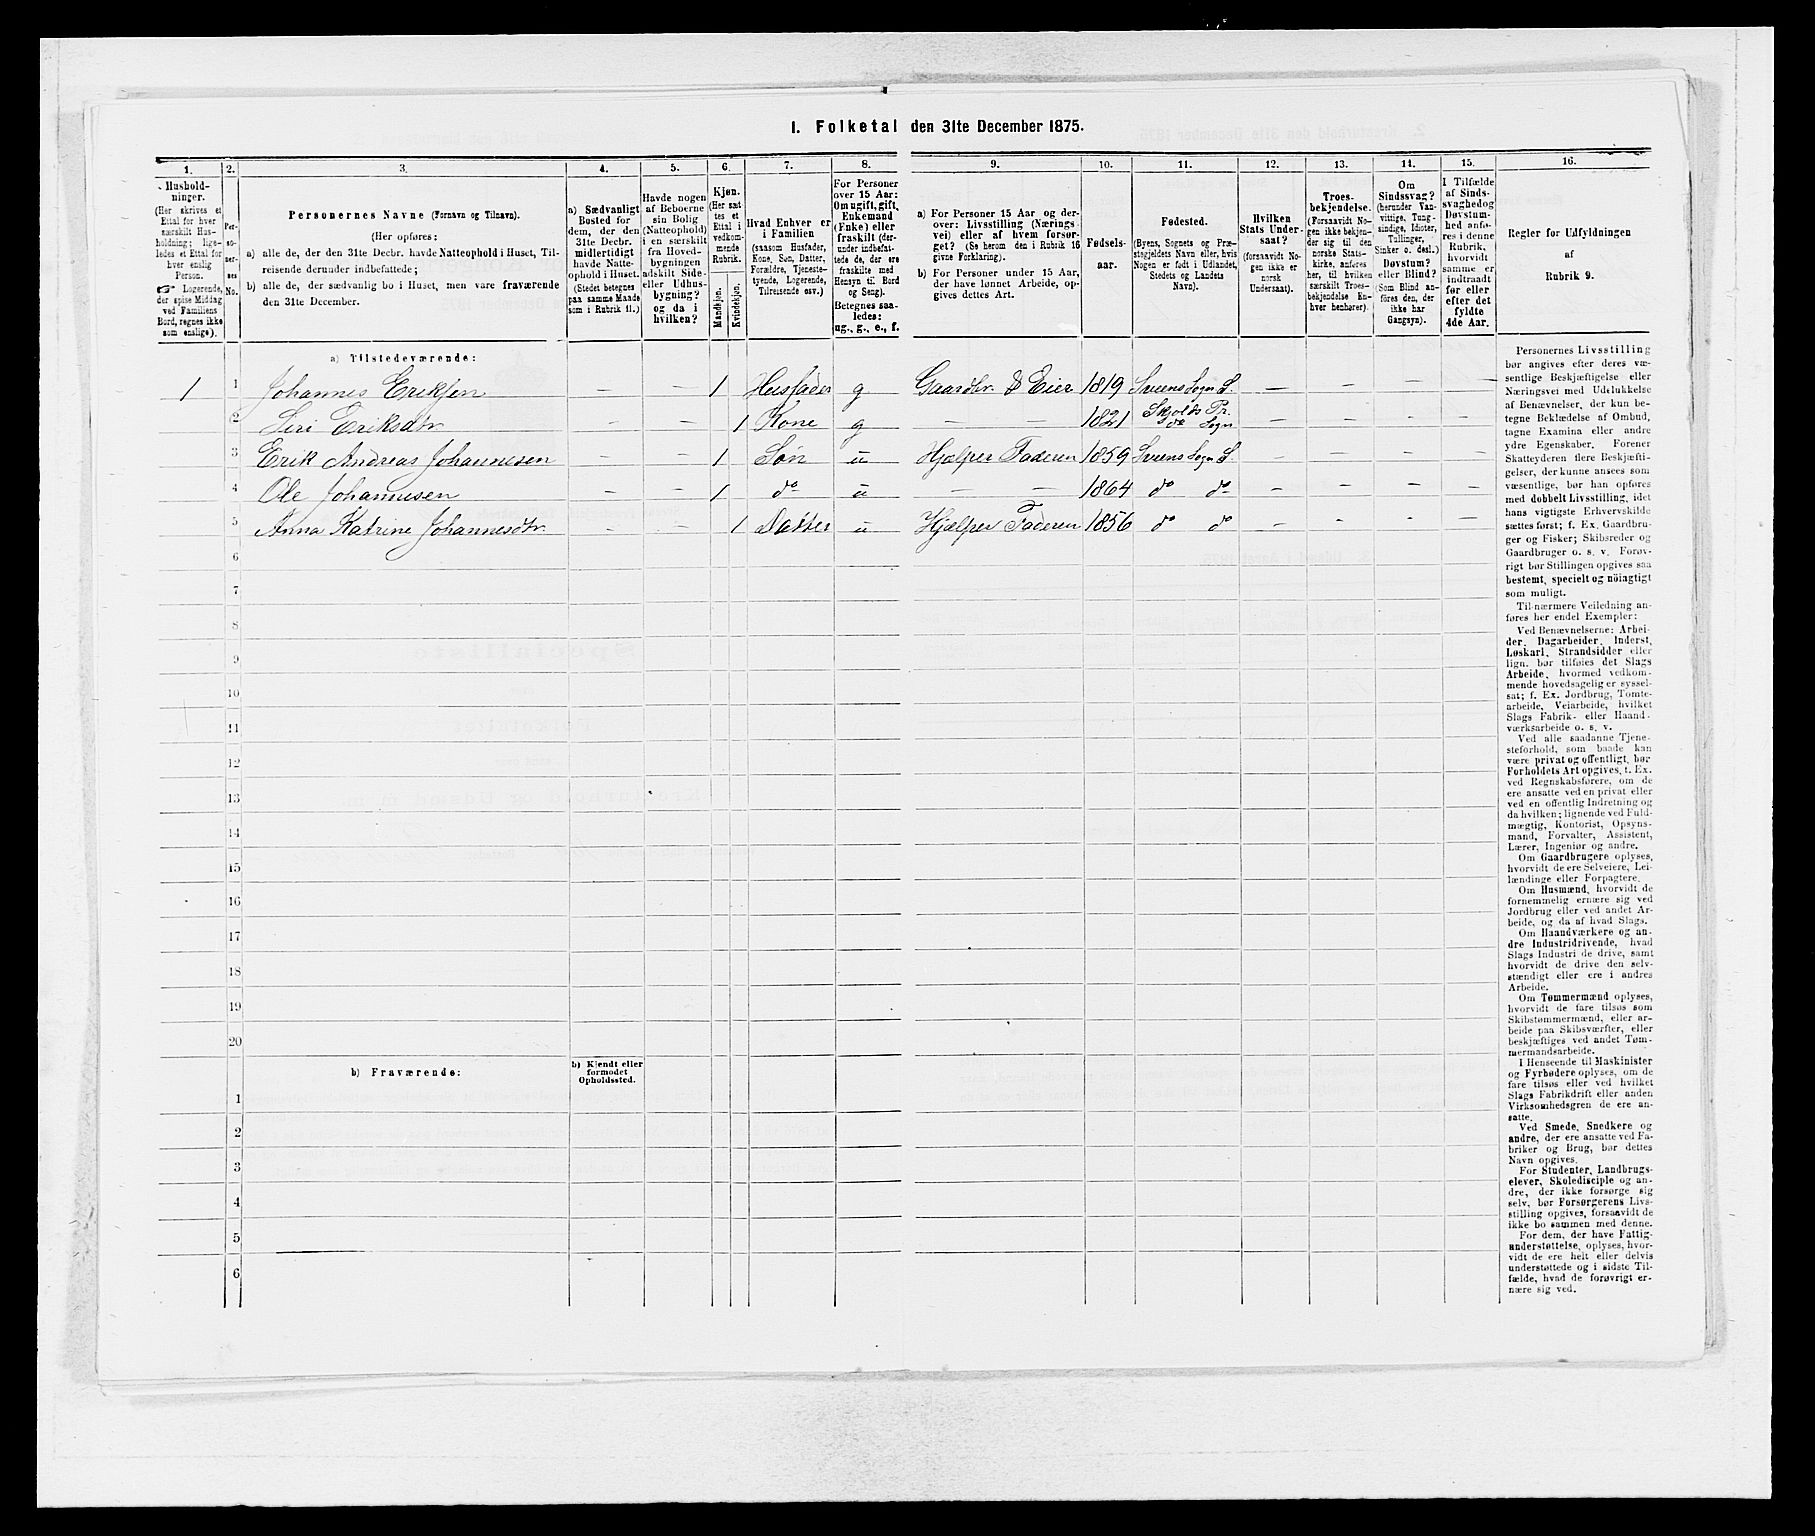 I. Folketal den 31te December 1875.
1. 2. 3. 4. 5. 6. 7. 8. 9. 10. 11. 12. 13. 14. 15. 16.
Husholdninger.
(Her skrives et
Ettal for hver
særskilt Husholdning;
ligeledes et Ettal for
hver enslig
Person.
☞ Logerende,
der spise Middag
ved Familiens
Bord, regnes ikke
som enslige).
Personernes No.
Personernes Navne (Fornavn og Tilnavn).
(Her opføres:
a) alle de, der den 31te Decbr. havde Natteophold i Huset, Tilreisende derunder indbefattede;
b) alle de, der sædvanlig bo i Huset, men vare fraværende
den 31te December.
a) Sædvanligt
Bosted for
dem, der den
31te Decbr.
midlertidigt
havde Natteophold i Huset.
(Stedet betegnes
paa samme Maade
som i Rubrik 11.)
Havde nogen
af Beboerne
sin Bolig
(Natteophold)
i en særskilt
fra Hovedbygningen
adskilt Side-
eller Udhusbygning?
og da i
hvilken?
Kjøn.
(Her sættes et
Ettal i
vedkommende
Rubrik.
Mandkjøn.
Kvindekjøn.
Hvad Enhver er
i Familien
(saasom Husfader,
Kone, Søn, Datter,
Forældre, Tjenestetyende, Logerende,
Tilreisende osv.)
For Personer
over 15 Aar:
Om ugift, gift,
Enkemand
(Enke) eller
fraskilt (derunder indbefattede de, der ere
fraskilte med
Hensyn til Bord
og Seng).
Betegnes saaledes:
ug., g., e., f.
a) For Personer 15 Aar og derover: Livsstilling (Næringsvei) eller af hvem forsørget? (Se herom den i Rubrik 16
givne Forklaring).
b) For Personer under 15 Aar,
der have lønnet Arbeide, opgives dettes Art.
Fødselsaar.
Fødested.
(Byens, Sognets og Præstegjeldets Navn eller, hvis
Nogen er født i Udlandet,
Stedets og Landets
Navn).
Hvilken
Stats Undersaat?
(forsaavidt Nogen ikke er
norsk
Undersaat).
Troesbekjendelse.
(Forsaavidt Nogen ikke bekjender sig til den
norske Statskirke, anføres
her, til hvilken
særskilt Troesbekjendelse Enhver henhører).
Om
Sindssvag?
(herunder Vanvittige, Tungsindige, Idioter,
Tullinger,
Sinker o. desl.)
Døvstum?
eller Blind?
(Som Blind anføres den, der
ikke har
Gangsyn).
I Tilfælde
af Sindssvaghed og
Døvstumhed anføres i denne
Rubrik,
hvorvidt
samme er
indtraadt
før eller
efter det
fyldte
4de Aar.
Regler for Udfyldningen
af
Rubrik 9.
a) Tilstedeværende:
1 1 Johannes Eriksen — — 1 Husfader g Gaardbr. & Eier 1819 Sveens Sogn S. — — — —
2 Siri Eriksdtr — — 1 Kone g — — 1821 Skjolds Pr. do Sogn — — — —
3 Erik Andreas Johannesen — — 1 Søn u Hjælper Faderen 1859 Sveens Sogn S. — — — —
4 Ole Johannesen — — 1 do u — — 1864 do do — — — —
5 Anna Katrine Johannesdtr. — — 1 Datter u Hjælper Faderen 1856 do do — — — —
6
7
8
9
10
11
12
13
14
15
16
17
18
19
20
b) Fraværende:
b) Kjendt eller
formodet
Opholdssted.
1
2
3
4
5
6
Personernes Livsstilling
bør angives efter deres væsentlige Beskjæftigelse eller
Næringsvei med Udelukkelse
af Benævnelser, der kun betegne Beklædelse af Ombud,
tagne Examina eller andre
ydre Egenskaber. Forener
Skatteyderen flere Beskjæftigelser, der kunne ansees som
væsentlige, bør han opføres
med dobbelt Livsstilling, idet
hans vigtigste Erhvervskilde
sættes først; f. Ex. Gaardbruger og Fisker; Skibsreder og
Gaardbruger o. s. v. Forøvrigt bør Stillingen opgives saa
bestemt, specielt og nöiagtigt
som muligt.
Til nærmere Veiledning anføres her endel Exempler:
Ved Benævnelserne: Arbeider, Dagarbeider, Inderst,
Løskarl, Strandsidder eller
lign. bør tilføies det Slags
Arbeide, hvormed vedkommende hovedsagelig er sysselsat; f. Ex. Jordbrug, Tomtearbeide, Veiarbeide, hvilket
Slags Fabrik- eller Haandværksarbeide o. s. v.
Ved alle saadanne Tjenesteforhold, som baade kan
være privat og offentligt, bør
Forholdets Art opgives, t. Ex.
ved Regnskabsførere, om de
ere ansatte ved en privat eller
ved en offentlig Indretning og
da hvilken; lignende ved Fuldmægtig, Kontorist, Opsynsmand, Forvalter, Assistent,
Lærer, Ingeniør og andre.
Om Gaardbrugere oplyses,
hvorvidt de ere Selveiere, Leilændinge eller Forpagtere.
Om Husmænd, hvorvidt de
fornemmelig ernære sig ved
Jordbrug eller ved andet Arbeide, og da af hvad Slags.
Om Haandværkere og andre Industridrivende, hvad
Slags Industri de drive, samt
hvorvidt de drive den selvstændigt eller ere i andres
Arbeide.
Om Tømmermænd oplyses,
hvorvidt de fare tilsøs som
Skibstømmermænd, eller arbeide paa Skibsværfter, eller
beskjæftiges ved andet Tømmermandsarbeide.
I Henseende til Maskinister
og Fyrbødere oplyses, om de
fare tilsøs eller ved hvilket
Slags Fabrikdrift eller anden
Virksomhedsgren de ere ansatte.
Ved Smede, Snedkere og
andre, der ere ansatte ved Fabriker og Brug, bør dettes
Navn opgives.
For Studenter, Landbrugselever, Skoledisciple og andre, der ikke forsørge sig
selv, bør Forsørgerens Livsstilling opgives, forsaavidt de
ikke bo sammen med denne.
For dem, der have Fattigunderstøttelse, oplyses, hvorvidt de ere helt eller delvis
understøttede og i sidste Tilfælde, hvad de forøvrigt ernære sig ved.